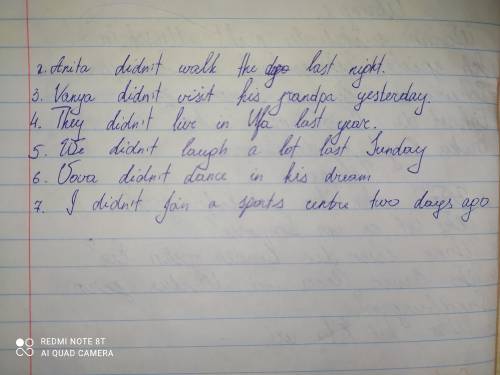 2. Anita didn't walk the dgo last night.
3. Vanya didn't visit his grandpa yesterday.
4. They didn't live in Ufa last year.
5. We didn't laugh a lot last Sunday
6. Vova didn't dance in his dream
7. I didn't join a sports centre two days ago
REDMI NOTE 8T
AI QUAD CAMERA